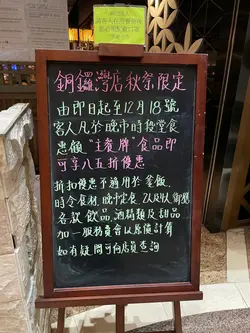 銅鑼灣店秋祭限定
由即日起至12月18號
客人凡於晚市時段堂食
惠顧"主餐牌"食品即
可享八五折優惠
折扣優惠不適用於釜飯,
時令食材, 晚市定食, 2人及4人套餐
各款飲品, 酒精類及甜品
加一服務費會以原價計算
如有疑問可向店員查詢